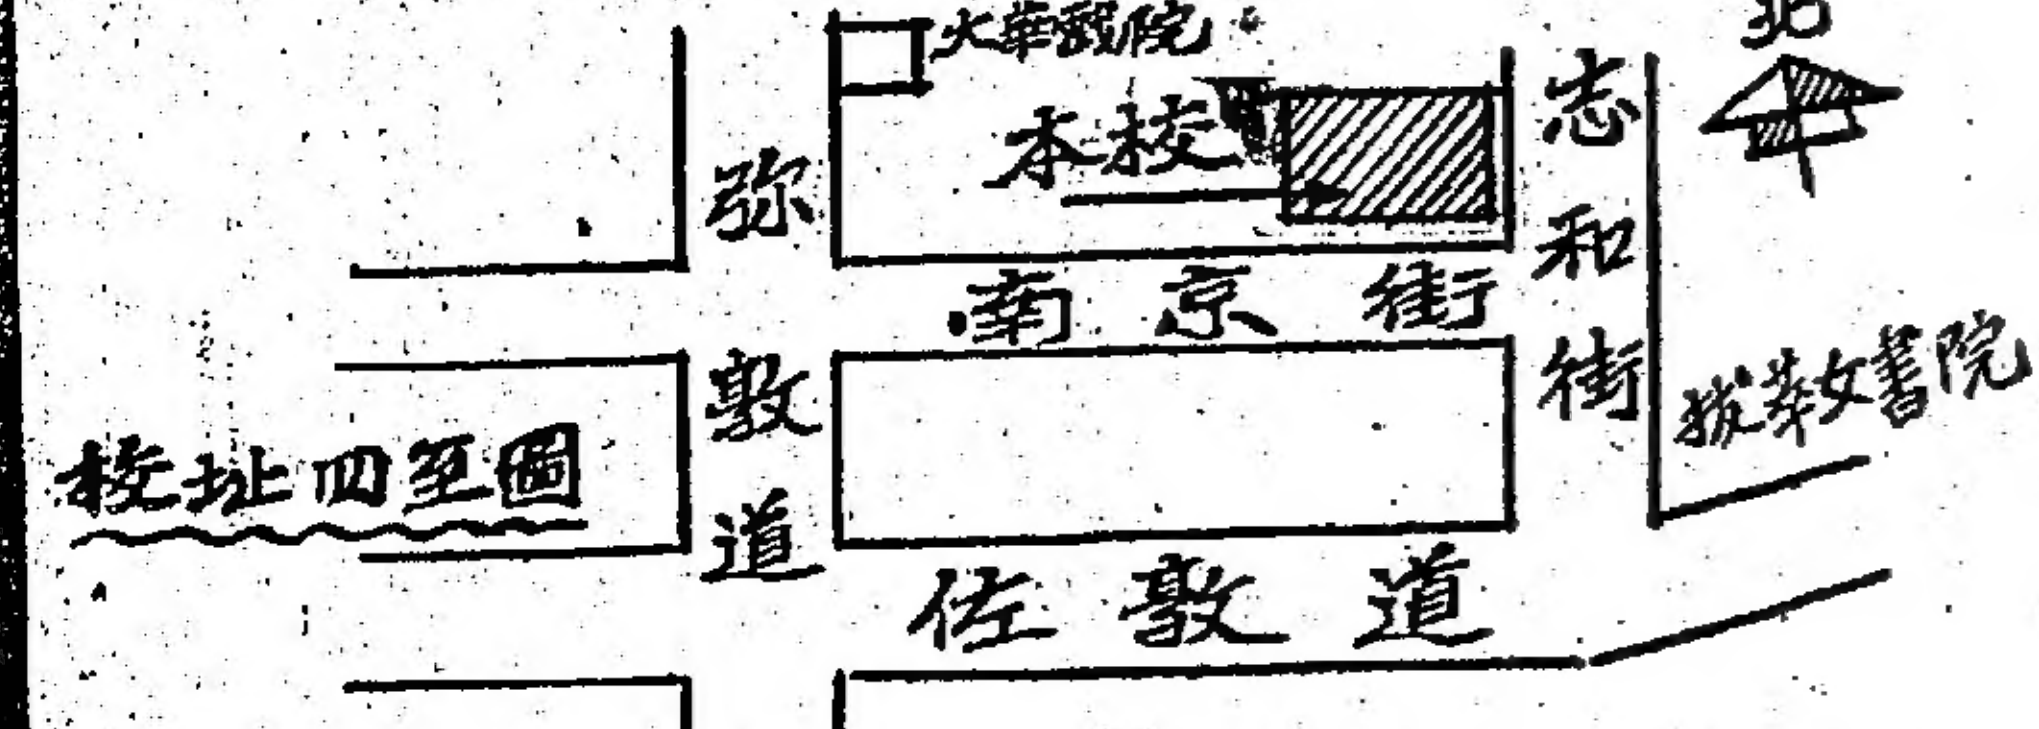 北
大華戲院
本校
志和街
弥敦道
南京街
拔萃女書院
校址四至圖
佐敦道